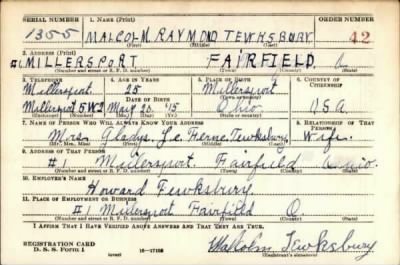 SERIAL NUMBER 1. NAME (Print) ORDER NUMBER
1355 MALCOLM RAYMOND TEWKSBURY 42
(First) (Middle) (Last)
2. ADDRESS (Print)
#1 MILLERSPORT FAIRFIELD O
(Number and street or R. F. D. number) (Town) (County) (State)
3. TELEPHONE 4. AGE IN YEARS 5. PLACE OF BIRTH 6. COUNTRY OF CITIZENSHIP
Millersport 25 Millersport
DATE OF BIRTH (Town or county)
Millersport 5W2 May 20 '15 Ohio USA
(Exchange) (Number) (Mo.) (Day) (Yr.) (State or country)
7. NAME OF PERSON WHO WILL ALWAYS KNOW YOUR ADDRESS 8. RELATIONSHIP OF THAT PERSON
Mrs. Gladys Le Ferne Tewksbury Wife
(Mr., Mrs., Miss) (First) (Middle) (Last)
9. ADDRESS OF THAT PERSON
#1 Millersport Fairfield Ohio
(Number and street or R. F. D. number) (Town) (County) (State)
10. EMPLOYER'S NAME
Howard Tewksbury
11. PLACE OF EMPLOYMENT OR BUSINESS
#1 Millersport Fairfield O.
(Number and street or R. F. D. number) (Town) (County) (State)
I AFFIRM THAT I HAVE VERIFIED ABOVE ANSWERS AND THAT THEY ARE TRUE.
REGISTRATION CARD
D. S. S. Form 1 (over) Malcolm Tewksbury
(Registrant's signature)